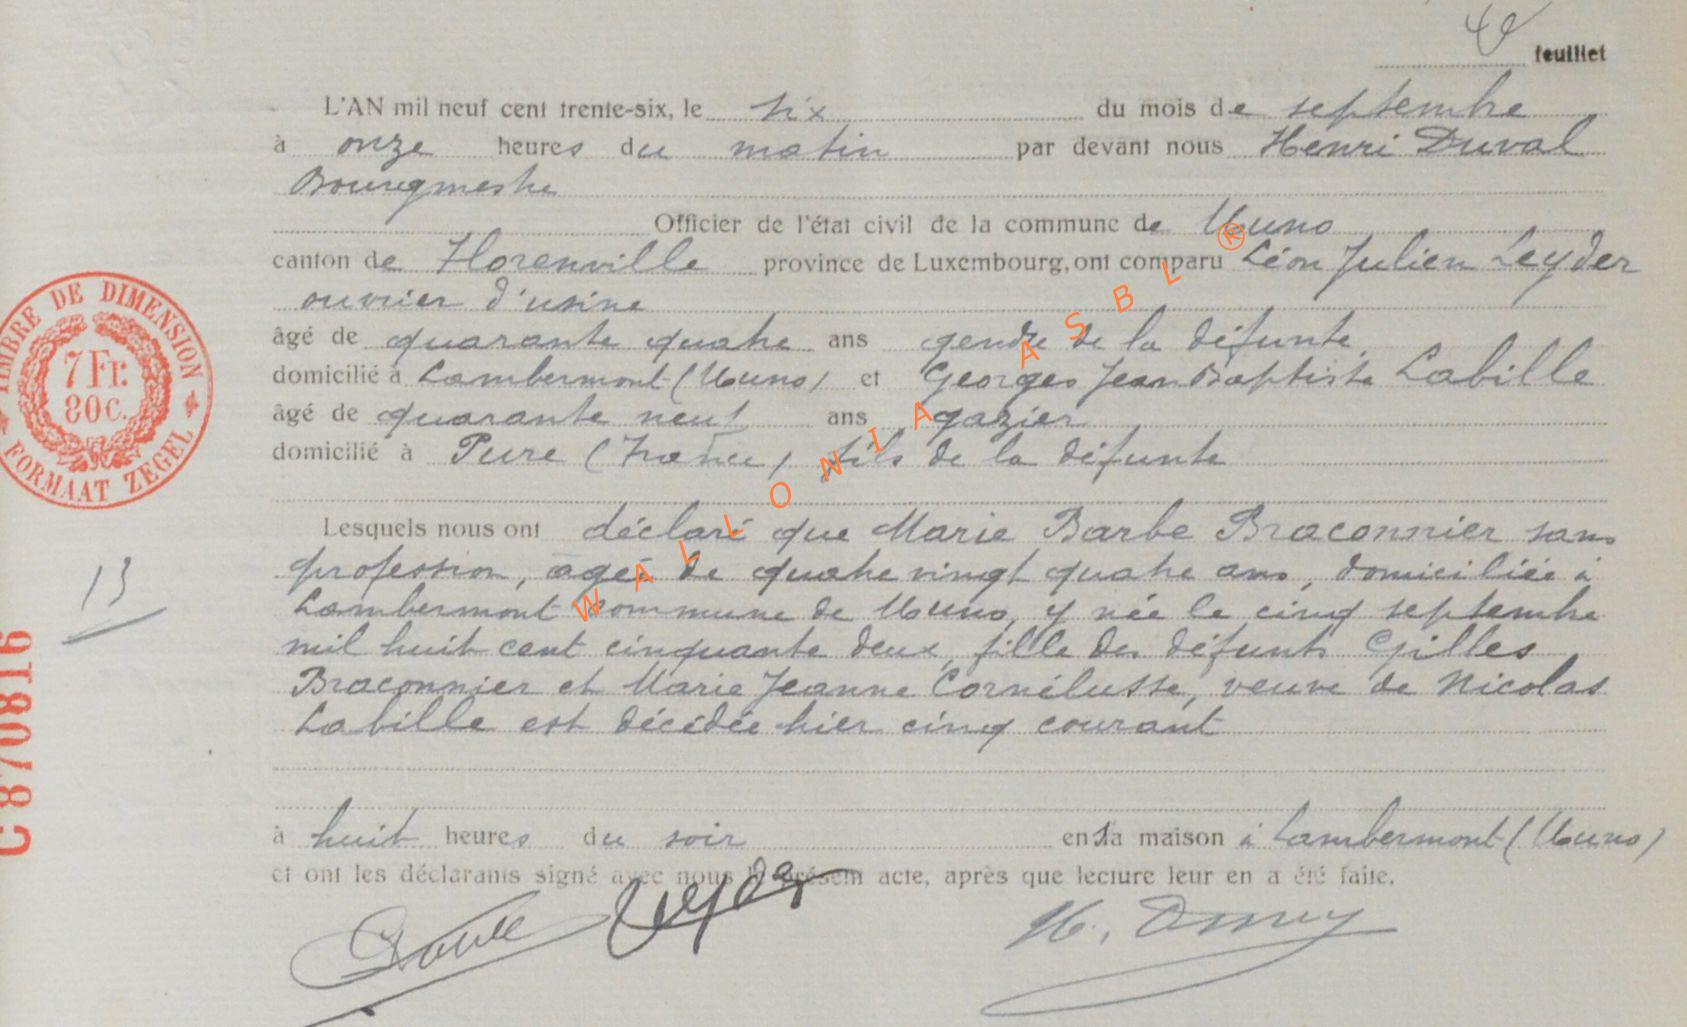 feuillet
L'AN mil neuf cent trente-six, le six du mois de septembre
à onze heures du matin par devant nous Henri Duval
Bourgmestre
Officier de l'état civil de la commune de Muno
canton de Florenville province de Luxembourg, ont comparu Léon Julien Leyder
ouvrier d'usine
âgé de quarante quatre ans gendre de la défunte
domicilié à Lambermont (Muno) et Georges Jean Baptiste Labille
âgé de quarante neuf ans gazier
domicilié à Pure (France) fils de la défunte
Lesquels nous ont déclaré que Marie Barbe Braconnier sans
profession, âgée de quatre vingt quatre ans, domiciliée à
Lambermont commune de Muno, y née le cinq septembre
mil huit cent cinquante deux, fille des défunts Gilles
Braconnier et Marie Jeanne Cornélusse, veuve de Nicolas
Labille est décédée hier cinq courant
à huit heures du soir en la maison à Lambermont (Muno)
et ont les déclarants signé avec nous le présent acte, après que lecture leur en a été faite.
TIMBRE DE DIMENSION
7 Fr.
80 C.
FORMAAT ZEGEL
13
C870816
WALLONIA ASBL ®